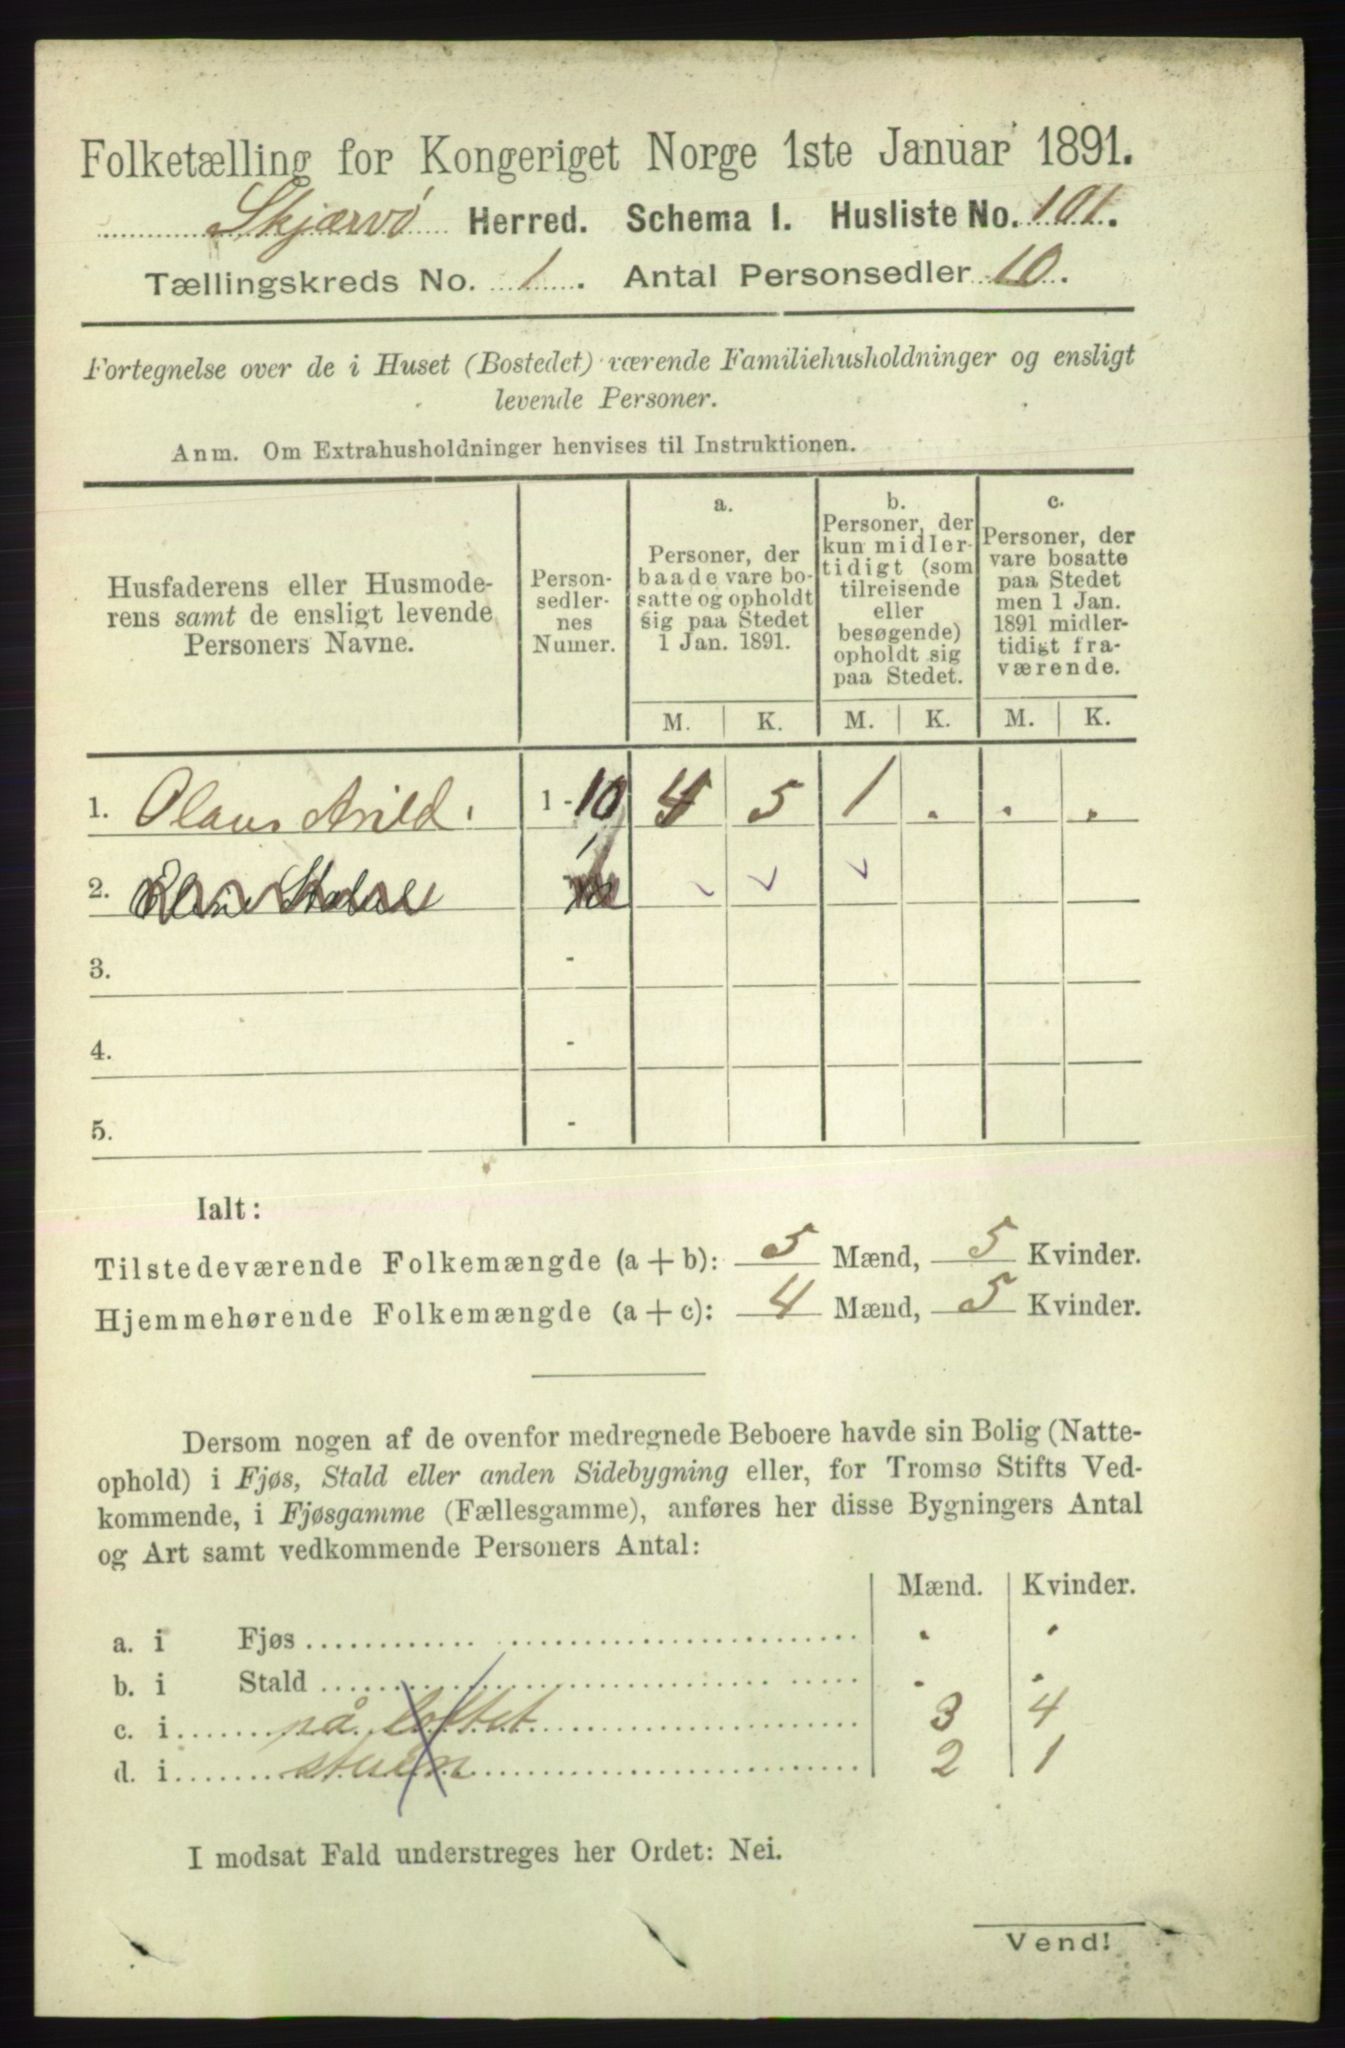 Folketælling for Kongeriget Norge 1ste Januar 1891.
Skjærvø Herred. Schema I. Husliste No. 101.
Tællingskreds No. 1. Antal Personsedler 10.
Fortegnelse over de i Huset (Bostedet) værende Familiehusholdninger og ensligt
levende Personer.
Anm. Om Extrahusholdninger henvises til Instruktionen.
Husfaderens eller Husmode-
rens samt de ensligt levende
Personers Navne.
Person-
sedler-
nes
Numer.
a.
Personer, der
baade vare bo-
satte og opholdt
sig paa Stedet
1 Jan. 1891.
b.
Personer, der
kun midler-
tidigt (som
tilreisende
eller
besøgende)
opholdt sig
paa Stedet.
c.
Personer, der
vare bosatte
paa Stedet
men 1 Jan.
1891 midler-
tidigt fra-
værende.
M. K. M. K. M. K.
1. Olaus Arild. 1 - 10 4 5 1 . . .
2.
3. -
4. -
5. -
Ialt:
Tilstedeværende Folkemængde (a + b): 5 Mænd, 5 Kvinder.
Hjemmehørende Folkemængde (a + c): 4 Mænd, 5 Kvinder.
Dersom nogen af de ovenfor medregnede Beboere havde sin Bolig (Natte-
ophold) i Fjøs, Stald eller anden Sidebygning eller, for Tromsø Stifts Ved-
kommende, i Fjøsgamme (Fællesgamme), anføres her disse Bygningers Antal
og Art samt vedkommende Personers Antal:
Mænd. Kvinder.
a. i Fjøs . .
b. i Stald . .
c. i på loftet 3 4
d. i stuen 2 1
I modsat Fald understreges her Ordet: Nei.
Vend!